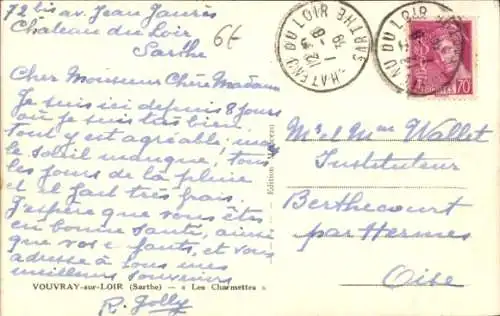 72 bis av. Jean Jaurès
Château du Loir
Sarthe
6f
Cher Monsieur Chère Madame
Je suis ici depuis 8 jours
où je suis très bien
tout y est agréable, mais
le soleil manque, tous
les jours de la pluie
et il fait très frais.
J'espère que vous êtes
en bonne santé, ainsi
que vos enfants, et vous
adresse à tous mes
meilleurs souvenirs
R. Jolly
VOUVRAY-sur-LOIR (Sarthe) — « Les Charmettes »
Edition
CHATEAU DU LOIR SARTHE
DU LOIR
70
Mr et Mme Wallet
Instituteur
Berthecourt
par Hermes
Oise